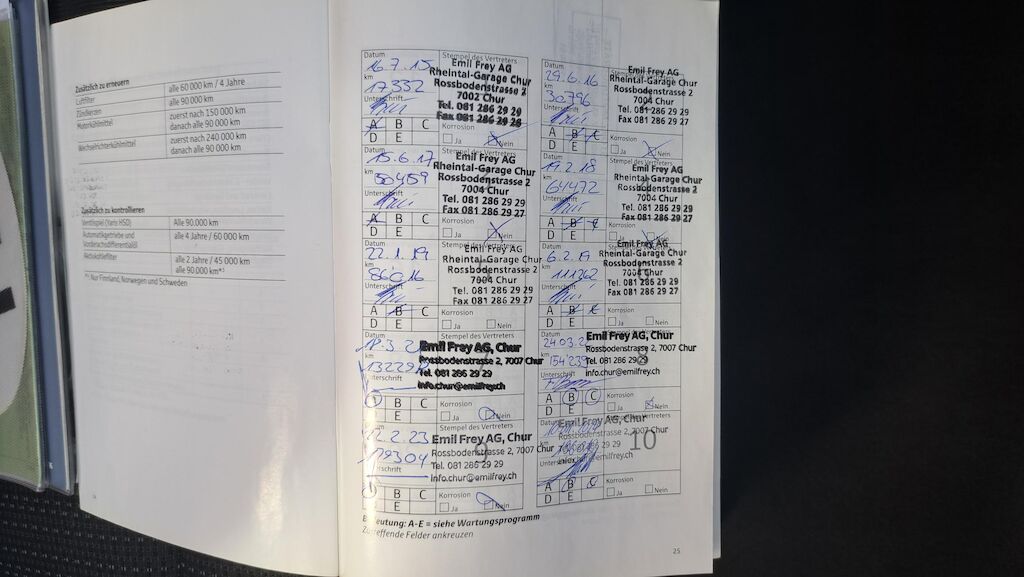 Zusätzlich zu erneuern
Luftfilter alle 60 000 km / 4 Jahre
Zündkerzen alle 90 000 km
Motorkühlmittel zuerst nach 150 000 km
danach alle 90 000 km
Wechselrichterkühlmittel zuerst nach 240 000 km
danach alle 90 000 km
Zusätzlich zu kontrollieren
Ventilspiel (Yaris HSD) Alle 90.000 km
Automatikgetriebe und
Vorderachsdifferentialöl alle 4 Jahre / 60 000 km
Aktivkohlefilter alle 2 Jahre / 45 000 km
alle 90.000 km*³
Nur Finnland, Norwegen und Schweden
Datum Stempel des Vertreters
16.7.15 Emil Frey AG
km Rheintal-Garage Chur
17332 Rossbodenstrasse 2
7002 Chur
Unterschrift Tel. 081 286 29 29
Fax 081 286 29 26
A B C Korrosion
D E Ja Nein
29.6.16 Emil Frey AG
km Rheintal-Garage Chur
30796 Rossbodenstrasse 2
7004 Chur
Unterschrift Tel. 081 286 29 29
Fax 081 286 29 27
A B C Korrosion
D E Ja Nein
Datum
15.6.17 Emil Frey AG
km Rheintal-Garage Chur
50459 Rossbodenstrasse 2
7004 Chur
Unterschrift Tel. 081 286 29 29
Fax 081 286 29 27
A B C Korrosion
D E Ja Nein
Datum Stempel des Vertreters
19.2.18 Emil Frey AG
km Rheintal-Garage Chur
64472 Rossbodenstrasse 2
7004 Chur
Unterschrift Tel. 081 286 29 29
Fax 081 286 29 27
A B C Korrosion
D E Ja Nein
Datum Stempel des Vertreters
22.1.19 Emil Frey AG
km Rheintal-Garage Chur
86016 Rossbodenstrasse 2
7004 Chur
Unterschrift Tel. 081 286 29 29
Fax 081 286 29 27
A B C Korrosion
D E Ja Nein
Datum
6.2. Emil Frey AG
km Rheintal-Garage Chur
111262 Rossbodenstrasse 2
7004 Chur
Unterschrift Tel. 081 286 29 29
Fax 081 286 29 27
A B C Korrosion
D E Ja Nein
Datum Stempel des Vertreters
Emil Frey AG, Chur
km Rossbodenstrasse 2, 7007 Chur
Tel. 081 286 29 29
info.chur@emilfrey.ch
B C Korrosion
E Ja Nein
Datum Stempel des Vertreters
24.03.2 Emil Frey AG, Chur
km Rossbodenstrasse 2, 7007 Chur
154239 Tel. 081 286 29 29
Unterschrift info.chur@emilfrey.ch
A B C Korrosion
D E Ja Nein
Datum Stempel des Vertreters
2.2.23 Emil Frey AG, Chur
km Rossbodenstrasse 2, 7007 Chur
179304 Tel. 081 286 29 29
info.chur@emilfrey.ch
9
B C Korrosion
E Ja Nein
Datum Stempel des Vertreters
Emil Frey AG, Chur
Rossbodenstrasse 2, 7007 Chur
10
A B C Korrosion
D E Ja Nein
Bedeutung: A-E = siehe Wartungsprogramm
Zutreffende Felder ankreuzen
25